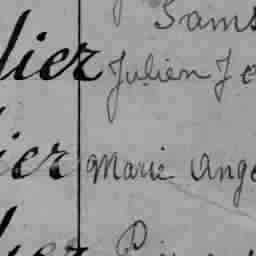 Sams
lier Julien Je
ier Marie Ange